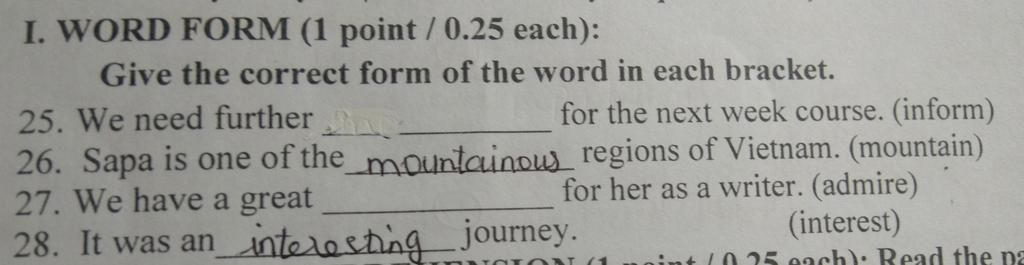 I. WORD FORM (1 point / 0.25 each):
Give the correct form of the word in each bracket.
25. We need further ____________ for the next week course. (inform)
26. Sapa is one of the mountainous regions of Vietnam. (mountain)
27. We have a great ____________ for her as a writer. (admire)
28. It was an interesting journey. (interest)
(1 point / 0.25 each): Read the